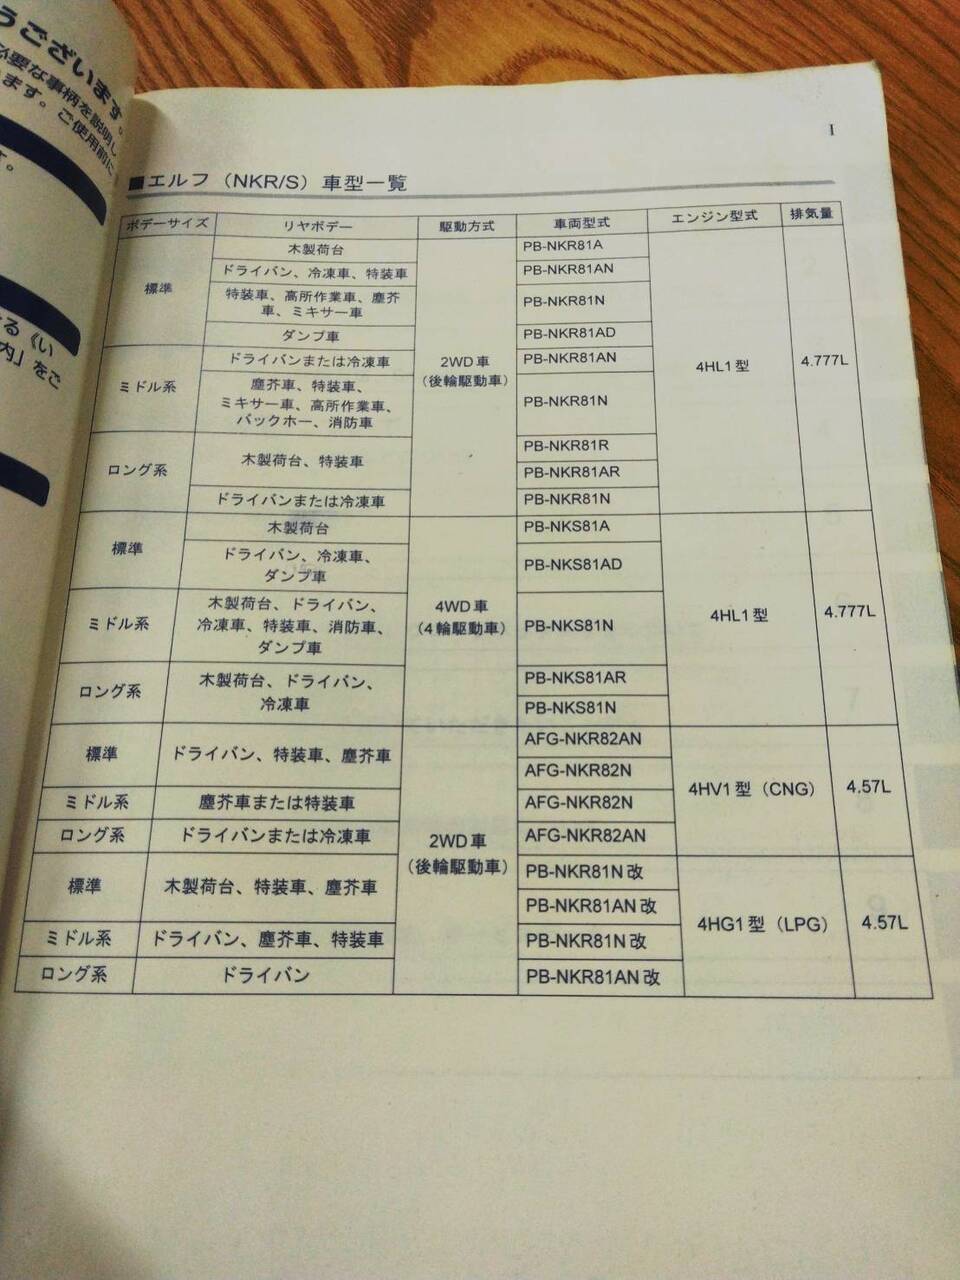 うございます。
必要な事柄を説明し
ます。ご使用前に
す。
る《い
内」をご
I
■エルフ(NKR/S)車型一覧
ボデーサイズ リヤボデー 駆動方式 車両型式 エンジン型式 排気量
標準 木製荷台 2WD車 (後輪駆動車) PB-NKR81A 4HL1型 4.777L
ドライバン、冷凍車、特装車 PB-NKR81AN
特装車、高所作業車、塵芥
車、ミキサー車 PB-NKR81N
ダンプ車 PB-NKR81AD
ミドル系 ドライバンまたは冷凍車 PB-NKR81AN
塵芥車、特装車、
ミキサー車、高所作業車、
バックホー、消防車 PB-NKR81N
ロング系 木製荷台、特装車 PB-NKR81R
PB-NKR81AR
ドライバンまたは冷凍車 PB-NKR81N
標準 木製荷台 4WD車 (4輪駆動車) PB-NKS81A 4HL1型 4.777L
ドライバン、冷凍車、
ダンプ車 PB-NKS81AD
ミドル系 木製荷台、ドライバン、
冷凍車、特装車、消防車、
ダンプ車 PB-NKS81N
ロング系 木製荷台、ドライバン、
冷凍車 PB-NKS81AR
PB-NKS81N
標準 ドライバン、特装車、塵芥車 2WD車 (後輪駆動車) AFG-NKR82AN 4HV1型(CNG) 4.57L
AFG-NKR82N
ミドル系 塵芥車または特装車 AFG-NKR82N
ロング系 ドライバンまたは冷凍車 AFG-NKR82AN
標準 木製荷台、特装車、塵芥車 PB-NKR81N改 4HG1型(LPG) 4.57L
PB-NKR81AN改
ミドル系 ドライバン、塵芥車、特装車 PB-NKR81N改
ロング系 ドライバン PB-NKR81AN改